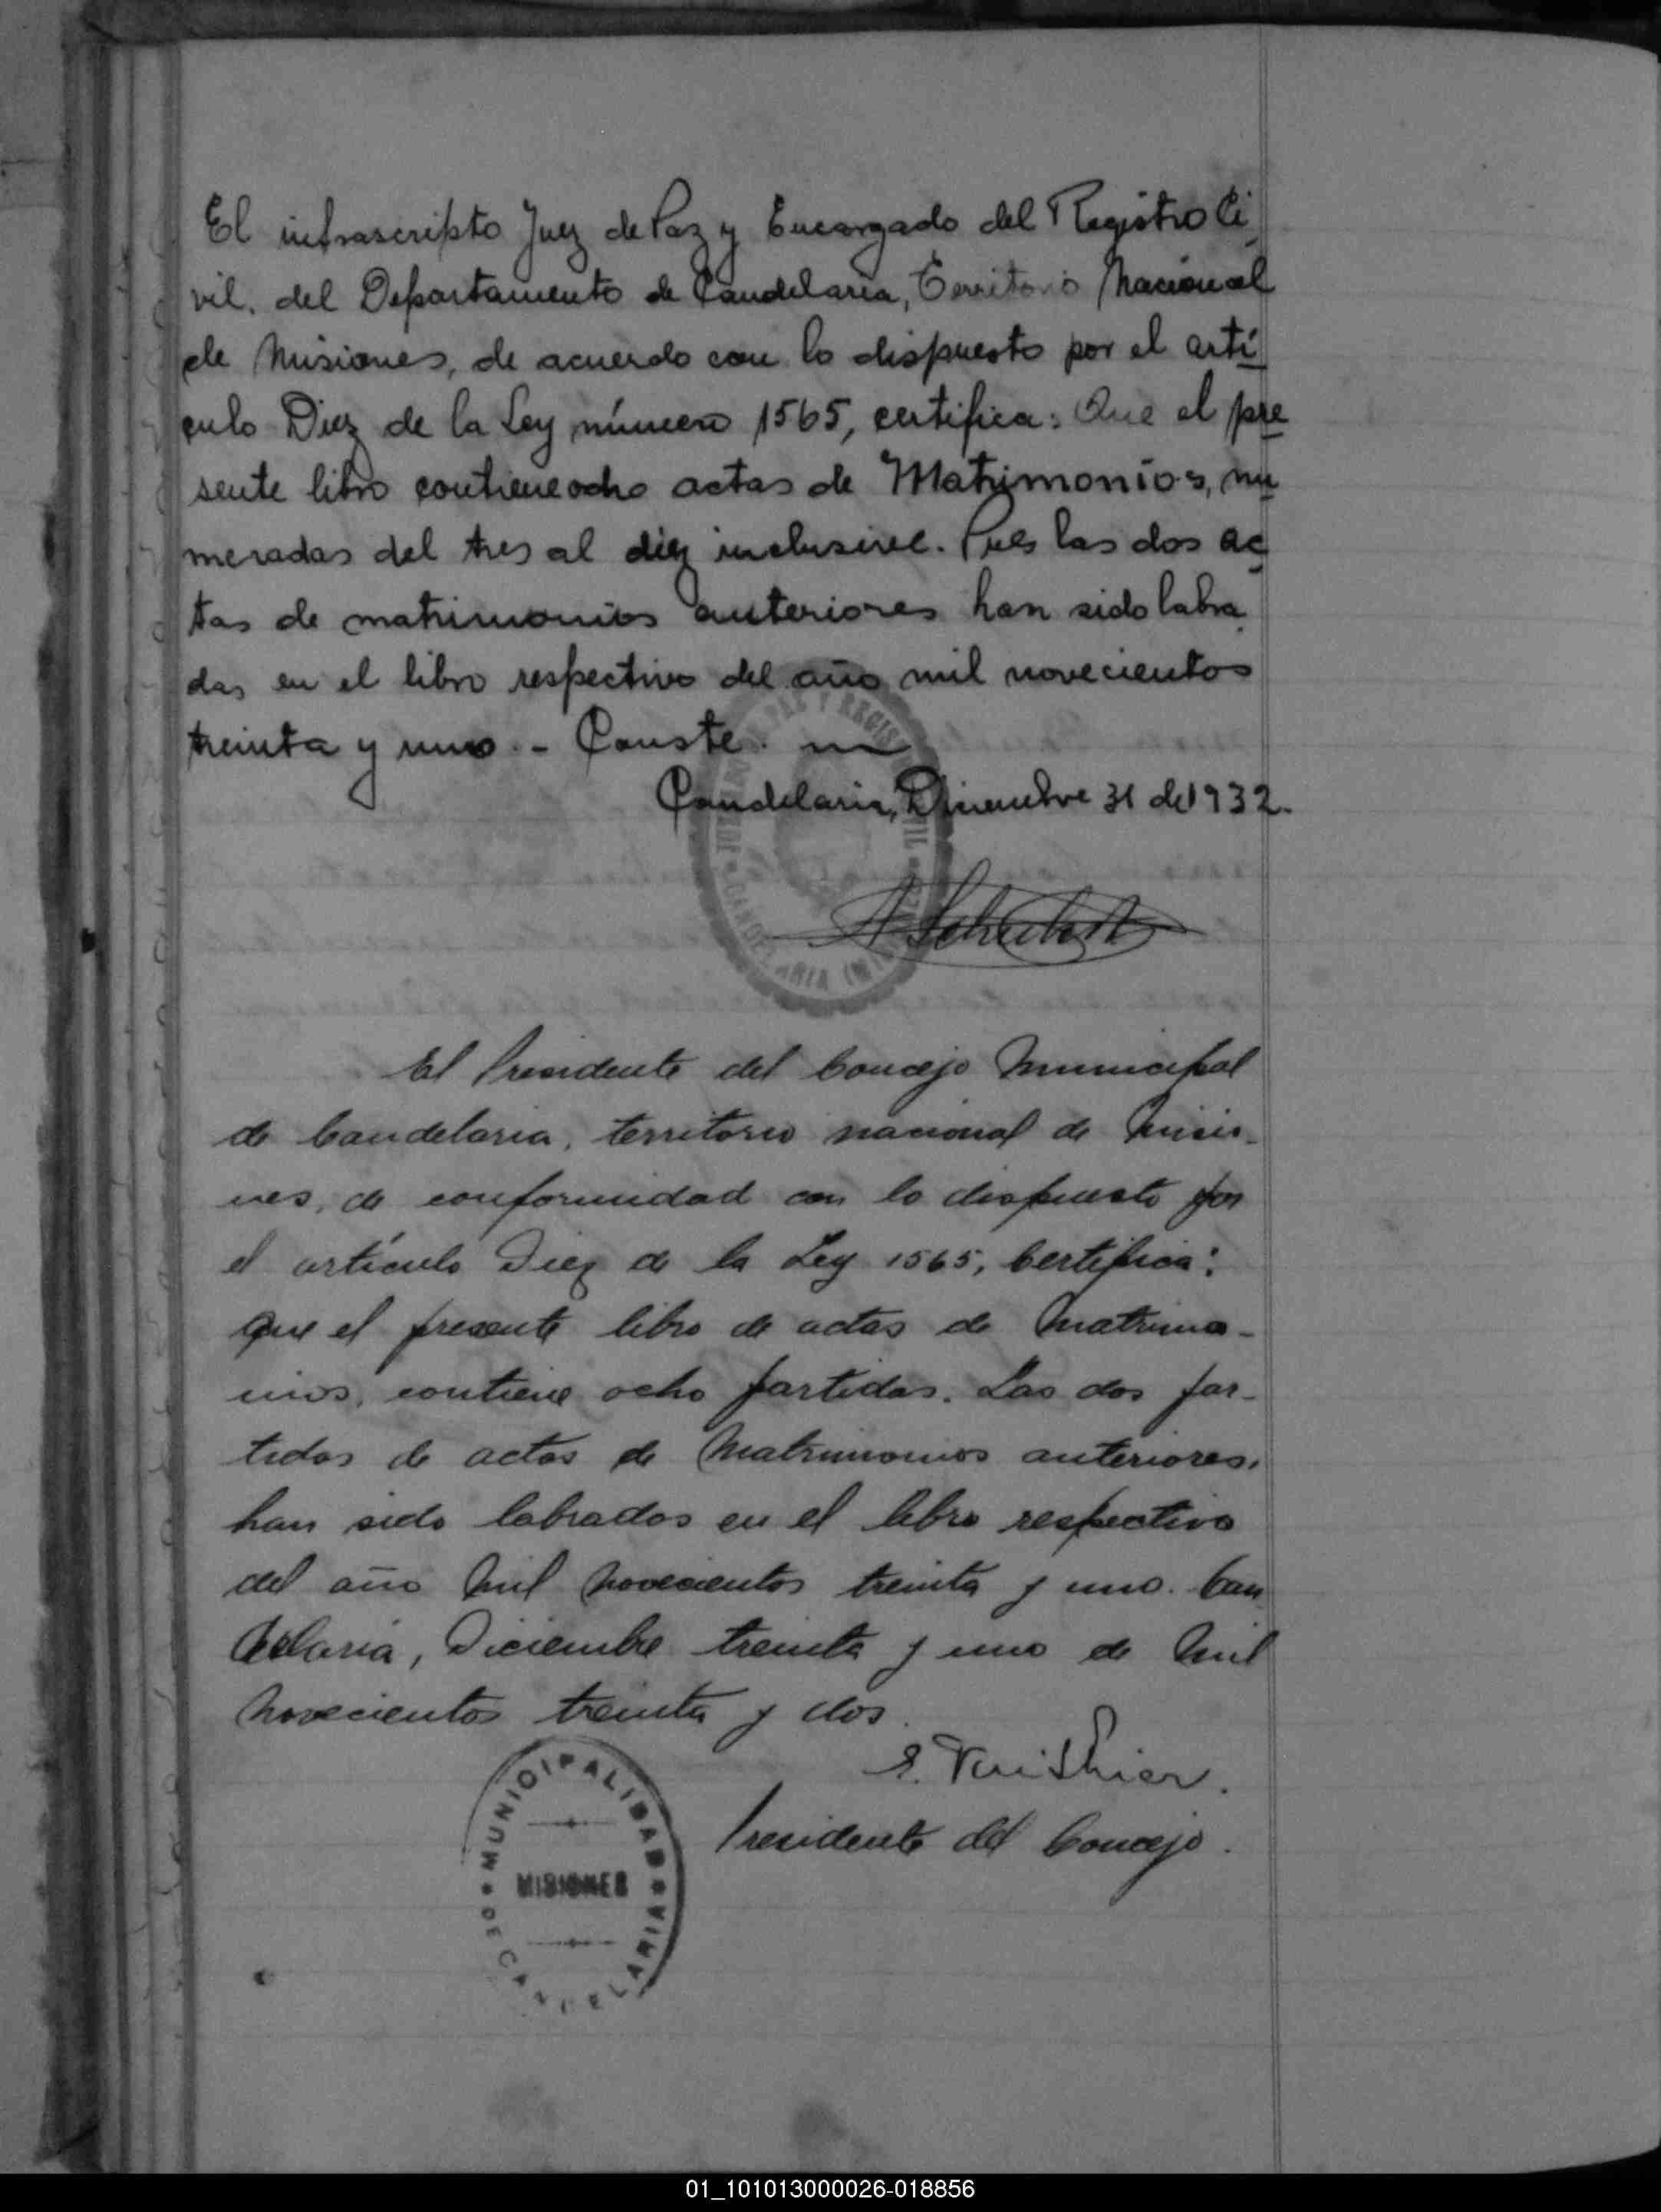 El infrascripto Juez de Paz y Encargado del Registro Ci
vil. del Departamento de Candelaria, Territorio Nacional
de Misiones, de acuerdo con lo dispuesto por el artí
culo Diez de la Ley número 1565, certifica: Que el pre
sente libro contiene ocho actas de Matrimonios, nu
meradas del tres al diez inclusive. Pues las dos ac
tas de matrimonios anteriores han sido labra
das en el libro respectivo del año mil novecientos
treinta y uno. - Conste.
Candelaria, Diciembre 31 de 1932.
El Presidente del Concejo Municipal
de Candelaria, territorio nacional de Misio-
nes, de conformidad con lo dispuesto por
el artículo Diez de la Ley 1565, Certifica:
que el presente libro de actas de Matrimo-
nios, contiene ocho partidas. Las dos par-
tidas de actas de Matrimonios anteriores,
han sido labrados en el libro respectivo
del año Mil Novecientos treinta y uno. Can
delaria, Diciembre treinta y uno de Mil
Novecientos treinta y dos.
Presidente del Concejo.
MUNICIPALIDAD
MISIONES
DE CANDELARIA
01_101013000026-018856